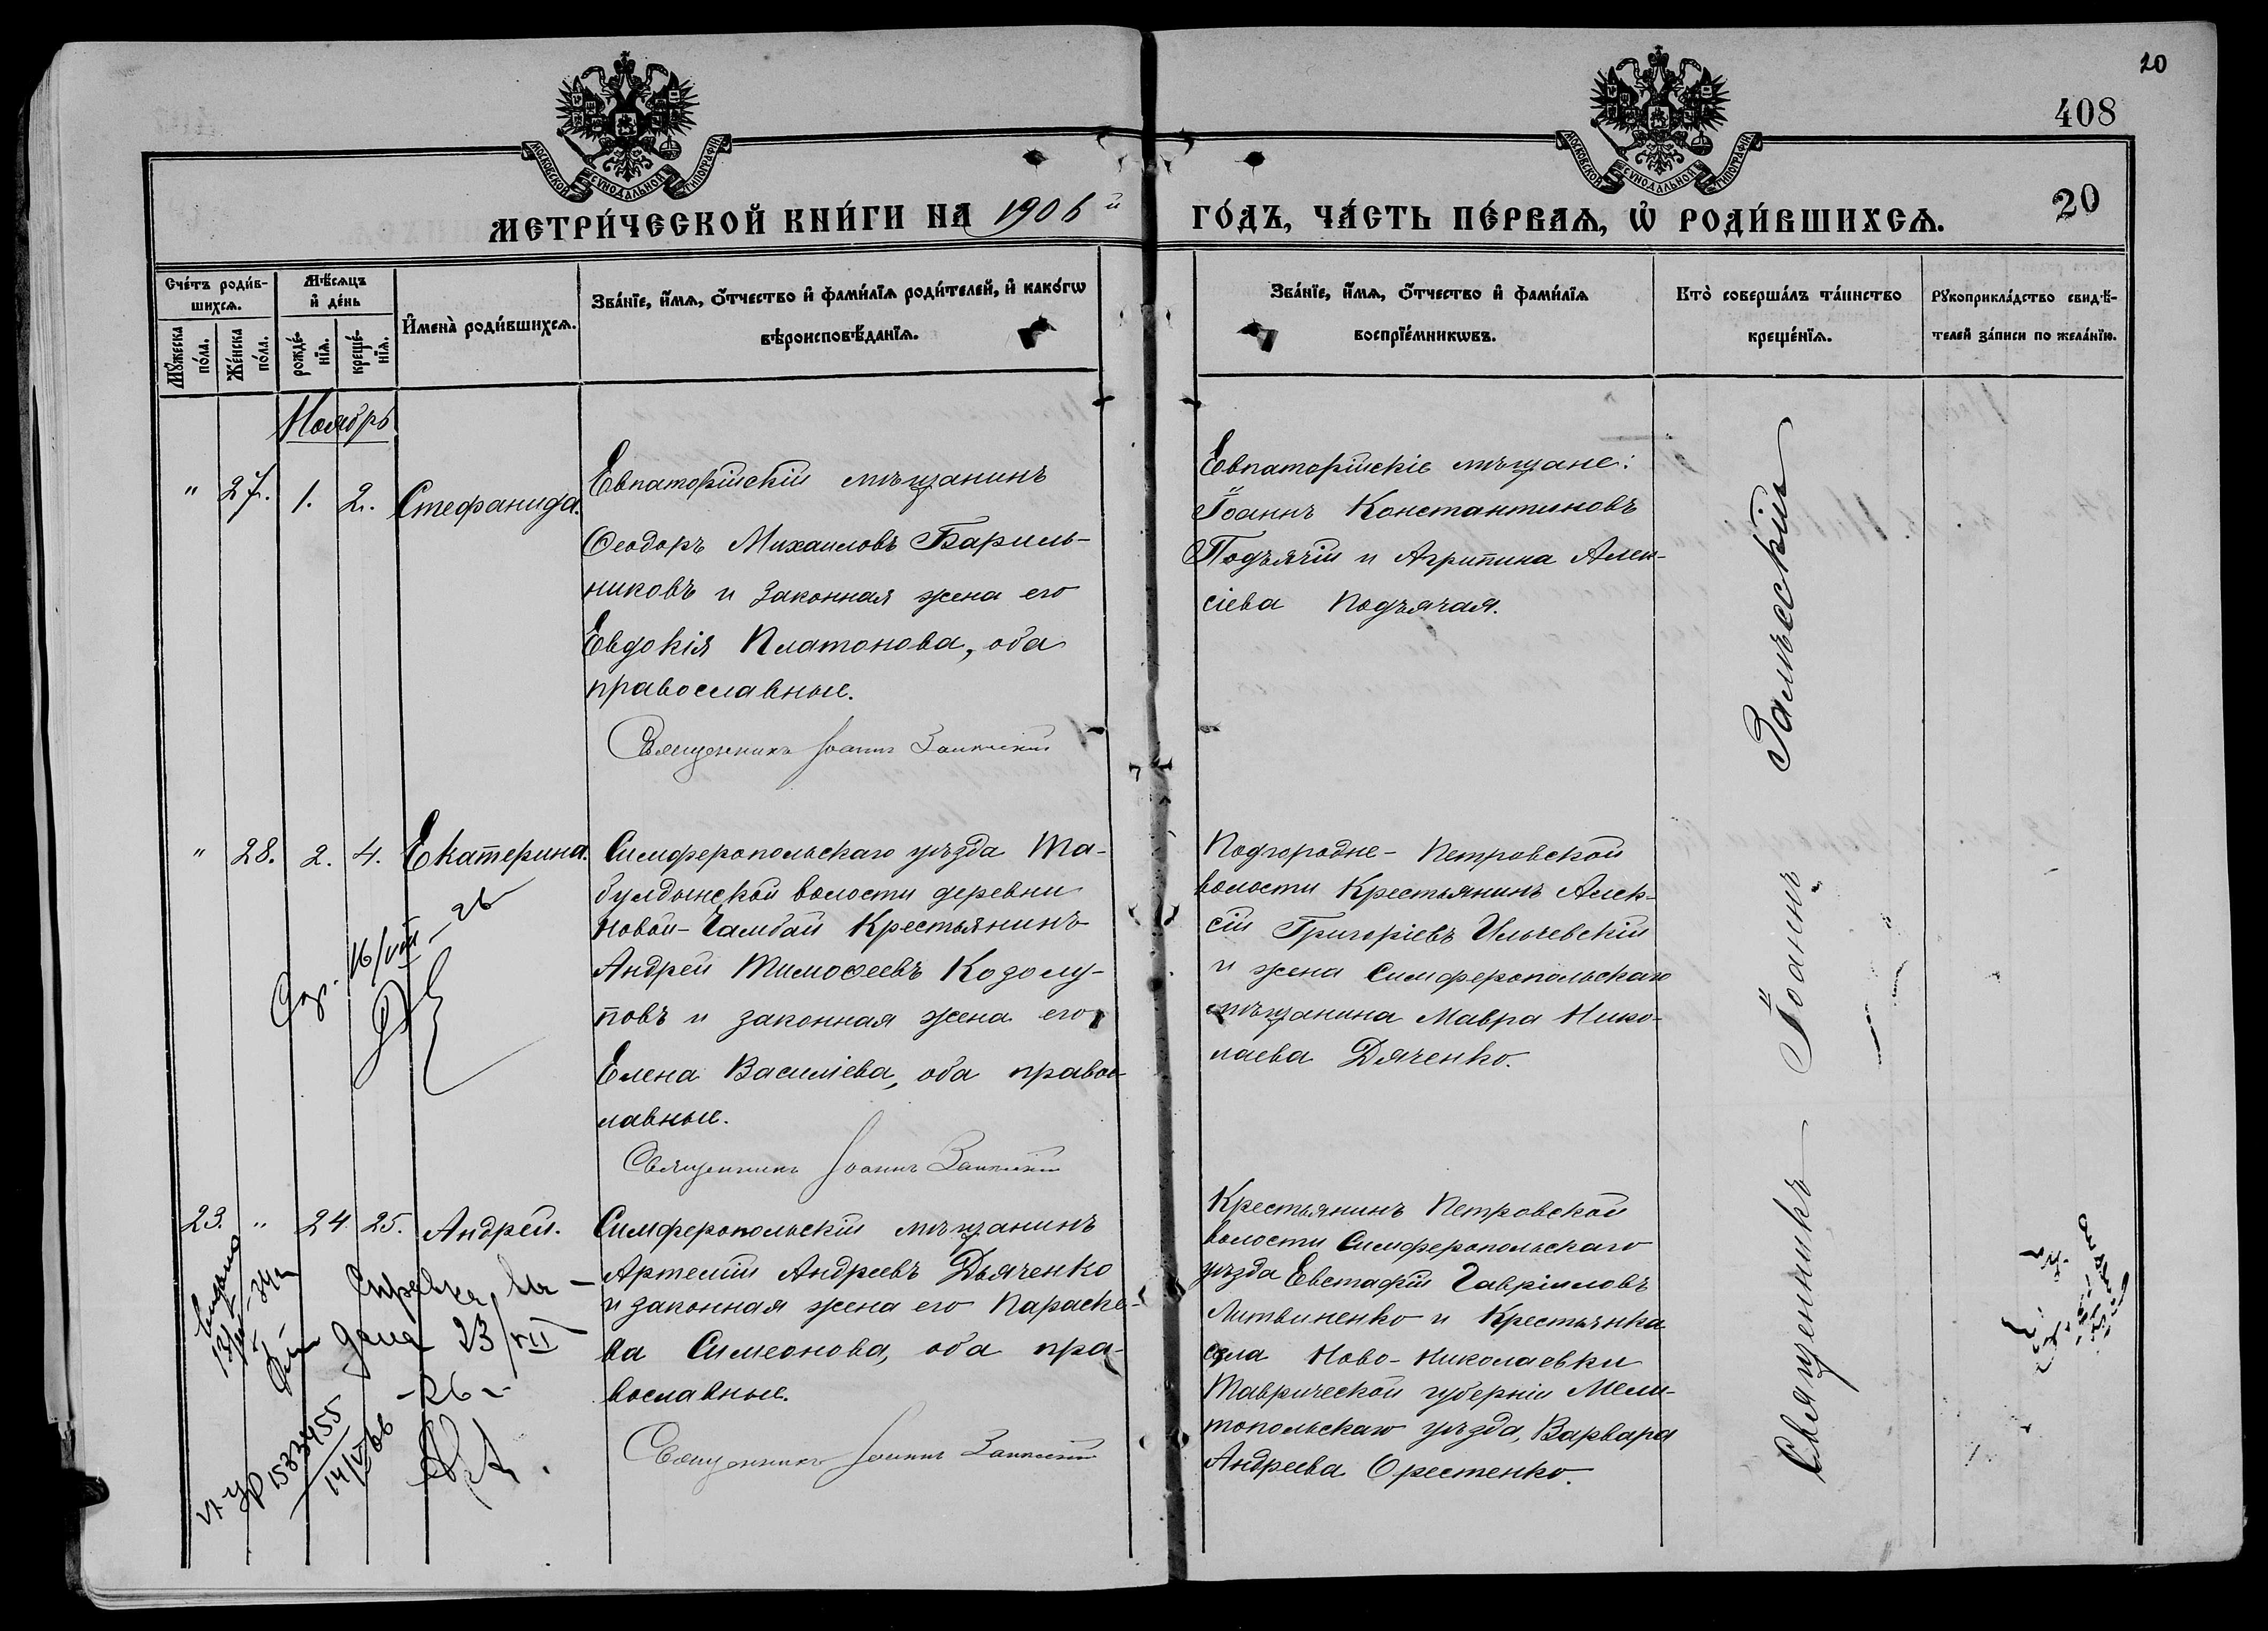 20
408
20
МОСКОВСКОЙ СѴНОДАЛЬНОЙ ТИПОГРАФІИ
МОСКОВСКОЙ СѴНОДАЛЬНОЙ ТИПОГРАФІИ
МЕТРИ́ЧЕСКОЙ КНИ́ГИ НА 1906 й
ГО́ДЪ, ЧА́СТЬ ПЕ́РВАѦ, Ѡ҆ РОДИ́ВШИХСѦ.
Сче́тъ роди́в-
шихсѧ.
Мꙋ́жеска по́ла.
Же́нска по́ла.
Мѣ́сѧцъ и҆ де́нь
рожде́-
нїѧ.
креще́-
нїѧ.
И҆мена̀ роди́вшихсѧ.
Зва́нїе, и҆́мѧ, ѻ҆́тчество и҆ фами́лїѧ роди́телей, и҆ како́гѡ
вѣроисповѣ́данїѧ.
Зва́нїе, и҆́мѧ, ѻ҆́тчество и҆ фами́лїѧ
воспрїе́мникѡвъ.
Кто̀ соверша́лъ та́инство
креще́нїѧ.
Рꙋкоприкла́дство свидѣ́-
телей за́писи по жела́нїю.
Ноябрь
" 27. 1. 2. Стефанида.
Евпаторійскій мѣщанинъ
Ѳеодоръ Михаиловъ Бариль-
никовъ и законная жена его
Евдокія Платонова, оба
православные.
Священникъ Іоаннъ Залѣсскій
Евпаторійскіе мѣщане:
Іоаннъ Константиновъ
Подъячій и Агрипина Алек-
сіева Подъячая.
" 28. 2. 4. Екатерина.
Симферопольскаго уѣзда Та-
булдынской волости деревни
Новой-Чамбай Крестьянинъ
Андрей Тимоѳеевъ Козолу-
повъ и законная жена его
Елена Василіева, оба правос-
лавные.
Священникъ Іоаннъ Залѣсскій
Подгородне-Петровской
волости Крестьянинъ Алек-
сій Григоріевъ Ильчевскій
и жена Симферопольскаго
мѣщанина Мавра Нико-
лаева Дяченко.
16/VIII-26
23. " 24. 25. Андрей.
Симферопольскій мѣщанинъ
Артемій Андреевъ Дьяченко
и законная жена его Параске-
ва Симеонова, оба пра-
вославные.
Священникъ Іоаннъ Залѣсскій
Крестьянинъ Петровской
волости Симферопольскаго
уѣзда Евстафій Гавріиловъ
Литвиненко и Крестьянка
села Ново-Николаевки
Таврической губерніи Мели-
топольскаго уѣзда, Варвара
Андреева Орестенко.
Справка
дана 23/VII
-26-
1583455
Священникъ Іоаннъ Залѣсскій